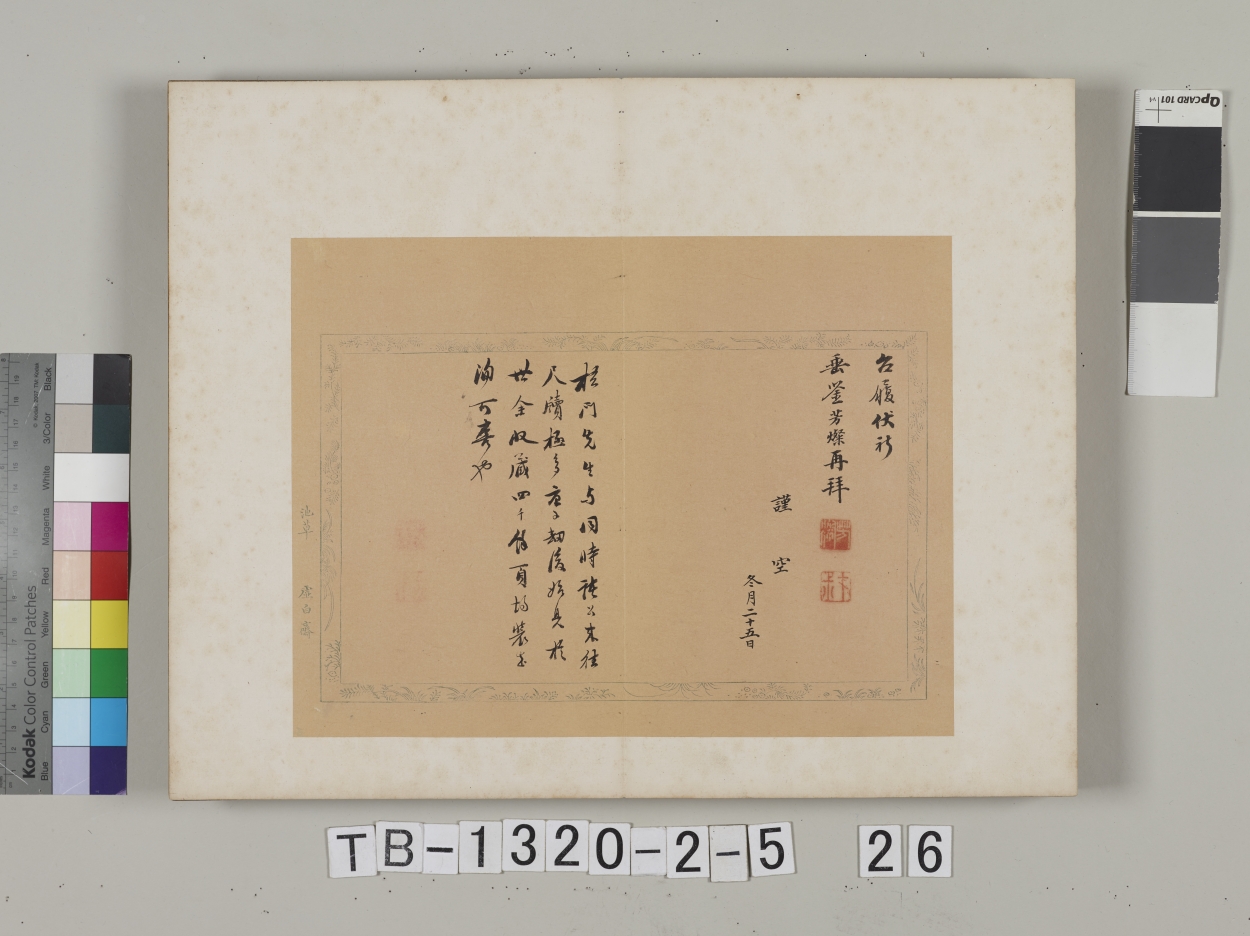 台履伏祈
垂鑒芳燦再拜
謹空
冬月二十五日
梧門先生与同時諸公来往
尺牘極多應子劫後始見於
世全收藏四千餘頁均裝
洵可寿也
池草
虚白齋
TB-1320-2-5 26
Kodak Color Control Patches
Blue Cyan Green Yellow Red Magenta White 3/Color Black
QPCARD 101